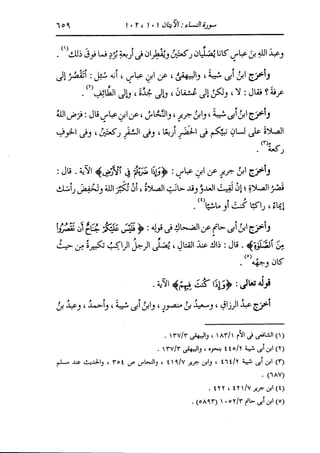 سورة النساء: الآيتان ١٠١، ١٠٢ ٦٥٩
وعبدَ اللهِ بنَ عباسٍ كانا يُصَلِّيان ركعتَيْن ويُفْطِران فى أربعةِ بُرُدٍ فما فوقَ ذلك(١).
وأخرَج ابنُ أبى شيبةَ، والبيهقىُّ، عن ابنِ عباسٍ، أنه سُئِل: أَنَقْصُرُ إلى
عرفةَ؟ فقال: لا، ولكن إلى عُسْفانَ، وإلى جُدَّةَ، وإلى الطائفِ(٢).
وأخرَج ابنُ أبى شيبةَ، وابنُ جريرٍ، والنَّحَّاسُ، عن ابنِ عباسٍ قال: فرَض اللهُ
الصلاةَ على لسانِ نبيِّكم فى الحَضَرِ أربعًا، وفى السَّفَرِ ركعتَيْن، وفى الخوفِ
ركعةً(٣).
وأخرَج ابنُ جريرٍ عن ابنِ عباسٍ: ﴿وَإِذَا ضَرَبْتُمْ فِى ٱلْأَرْضِ﴾ الآية. قال:
قَصْرُ الصلاةِ؛ إن لَقِيتَ العدوَّ وقد حانَتِ الصلاةُ، أن تُكَبِّرَ اللهَ وتَخْفِضَ رأسَك
إيماءً، راكبًا كنتَ أو ماشيًا(٤).
وأخرَج ابنُ أبى حاتمٍ عن الضحاكِ فى قولِه: ﴿فَلَيْسَ عَلَيْكُمْ جُنَاحٌ أَن تَقْصُرُوا۟
مِنَ ٱلصَّلَوٰةِ﴾. قال: ذاك عندَ القتالِ، يُصَلِّى الرجلُ الراكبُ تكبيرةً من حيثُ
كان وجهُه(٥).
قولُه تعالى: ﴿وَإِذَا كُنتَ فِيهِمْ﴾ الآية.
أخرَج عبدُ الرزاقِ، وسعيدُ بنُ منصورٍ، وابنُ أبى شيبةَ، وأحمدُ، وعبدُ بنُ
(١) الشافعى فى الأم ١/١٨٣، والبيهقى ٣/١٣٧.
(٢) ابن أبى شيبة ٢/٤٤٥ بنحوه، والبيهقى ٣/١٣٧.
(٣) ابن أبى شيبة ٢/٤٦٤، وابن جرير ٧/٤١٩، والنحاس ص ٣٥٤، والحديث عند مسلم
(٦٨٧).
(٤) ابن جرير ٧/٤٢١، ٤٢٢.
(٥) ابن أبى حاتم ٣/١٠٥٢ (٥٨٩٣).